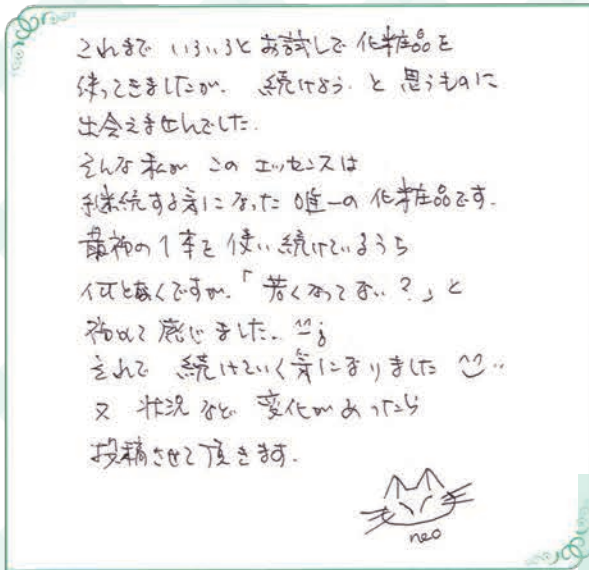 これまで いろいろと お試しで 化粧品を
使ってきましたが、 続けよう と 思うものに
出会えませんでした。
そんな 私が この エッセンスは
継続する気になった 唯一の 化粧品です。
最初の1本を 使い続けているうち
何となくですが、「若くなってない?」と
初めて 感じました。^^;
それで 続けていく気になりました ^^
又 状況など 変化があったら
投稿させて頂きます。
neo